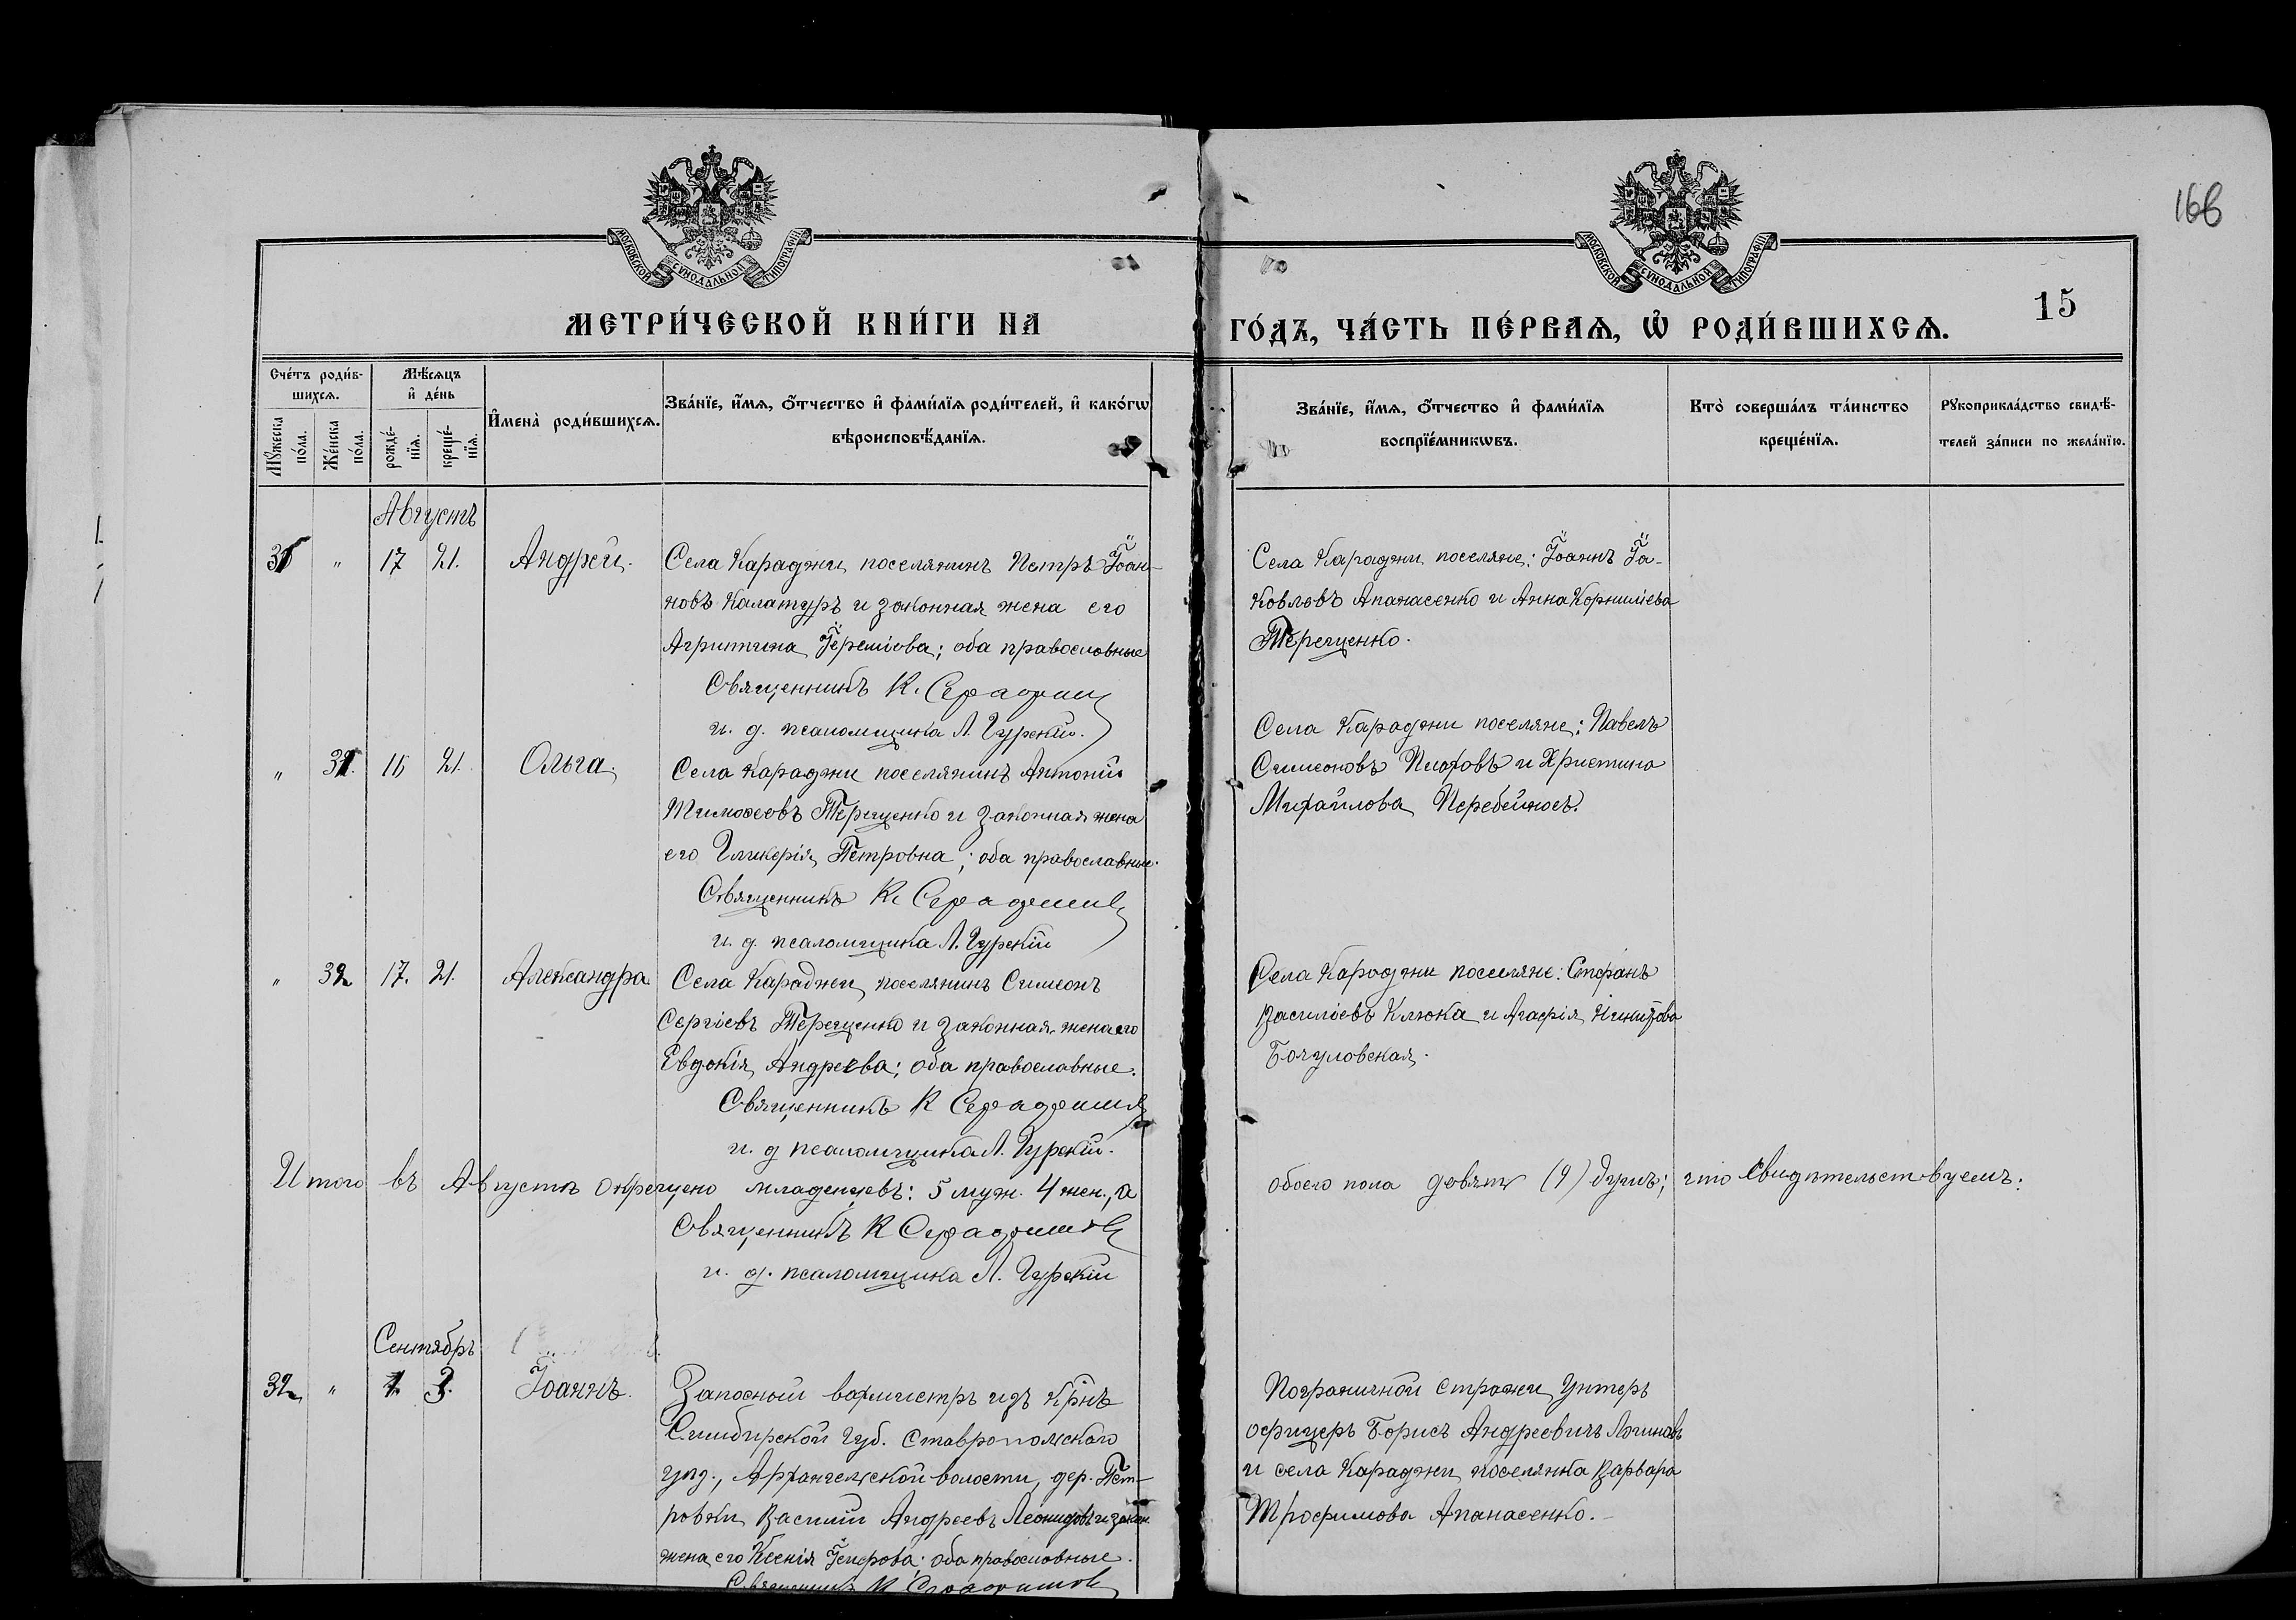 166
МОСКОВСКОЙ СѴНОДАЛЬНОЙ ТИПОГРАФІИ
МОСКОВСКОЙ СѴНОДАЛЬНОЙ ТИПОГРАФІИ
МЕТРИ́ЧЕСКОЙ КНИ́ГИ НА
ГО́ДЪ, ЧА́СТЬ ПЕ́РВАѦ, Ѡ҆ РОДИ́ВШИХСѦ.
15
Сче́тъ роди́в-
шихсѧ.
Мѣ́сѧцъ
и҆ де́нь
Мꙋ́жеска
по́ла.
Же́нска
по́ла.
рожде́-
нїѧ.
креще́-
нїѧ.
И҆мена̀ роди́вшихсѧ.
Зва́нїе, и҆́мѧ, ѻ҆́тчество и҆ фами́лїѧ роди́телей, и҆ како́гѡ
вѣроисповѣ́данїѧ.
Зва́нїе, и҆́мѧ, ѻ҆́тчество и҆ фами́лїѧ
воспрїе́мникѡвъ.
Кто̀ соверша́лъ та́инство
креще́нїѧ.
Рꙋкоприкла́дство свидѣ́-
телей за́писи по жела́нїю.
Августъ
31 " 17 21. Андрей.
Села Караджи поселянинъ Петръ Іоан-
новъ Калатуръ и законная жена его
Агриппина Іереміева; оба православные
Священникъ К. Серафимовъ
и. д. псаломщика Л. Гурскій.
Села Караджи поселяне: Іоаннъ Іа-
ковлевъ Апанасенко и Анна Корниліева
Терещенко.
" 31. 16 21. Ольга.
Села Караджи поселянинъ Антоній
Тимоѳеевъ Терещенко и законная жена
его Гликерія Петровна; оба православные.
Священникъ К. Серафимовъ
и. д. псаломщика Л. Гурскій
Села Караджи поселяне: Павелъ
Симеоновъ и Христина
Михайлова Перебейносъ.
" 32 17. 21. Александра
Села Караджи поселянинъ Симеонъ
Сергіевъ Терещенко и законная жена его
Евдокія Андреева; оба православные.
Священникъ К Серафимовъ
и. д псаломщика Л. Гурскій.
Села Караджи поселяне: Стефанъ
Василіевъ Клюка и Агафія Никитова
Итого въ Августѣ окрещено младенцевъ: 5 муж. 4 жен., а
обоего пола девять (9) душъ; что свидѣтельствуемъ:
Священникъ К Серафимовъ
и. д. псаломщика Л. Гурскій
Сентябрь
32 " 1. 3. Іоаннъ.
Запасный вахмистръ изъ крнъ
Симбирской губ. Ставропольскаго
уѣз., Архангельской волости, дер. Пет-
ровки Василій Андреевъ Леонидовъ и закон.
жена его Ксенія; оба православные.
Священникъ К Серафимовъ
Пограничной стражи Унтеръ
офицеръ Борисъ Андреевичъ Логиновъ
и села Караджи поселянка Варвара
Трофимова Апанасенко.